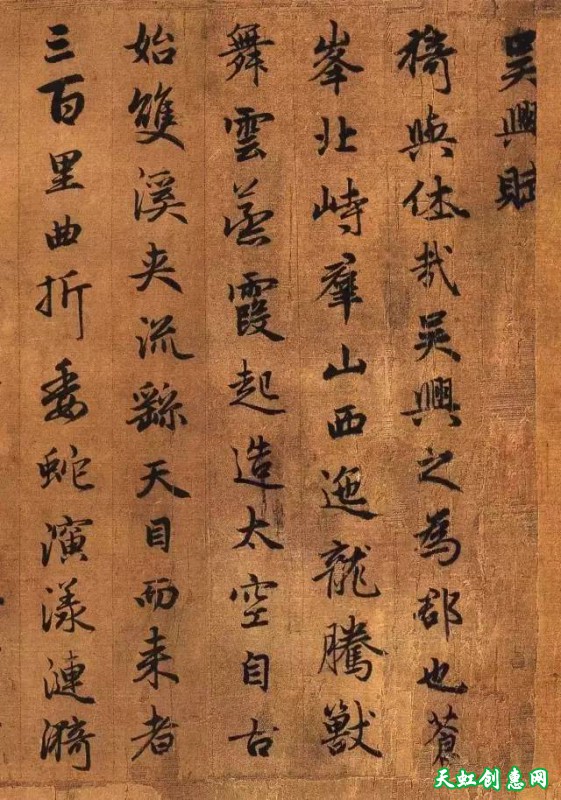 吳興賦
猗與休哉吳興之為郡也蒼
峯北峙羣山西迤龍騰獸
舞雲蒸霞起造太空自古
始雙溪夾流繇天目而来者
三百里曲折委蛇演漾漣漪
天虹创惠网